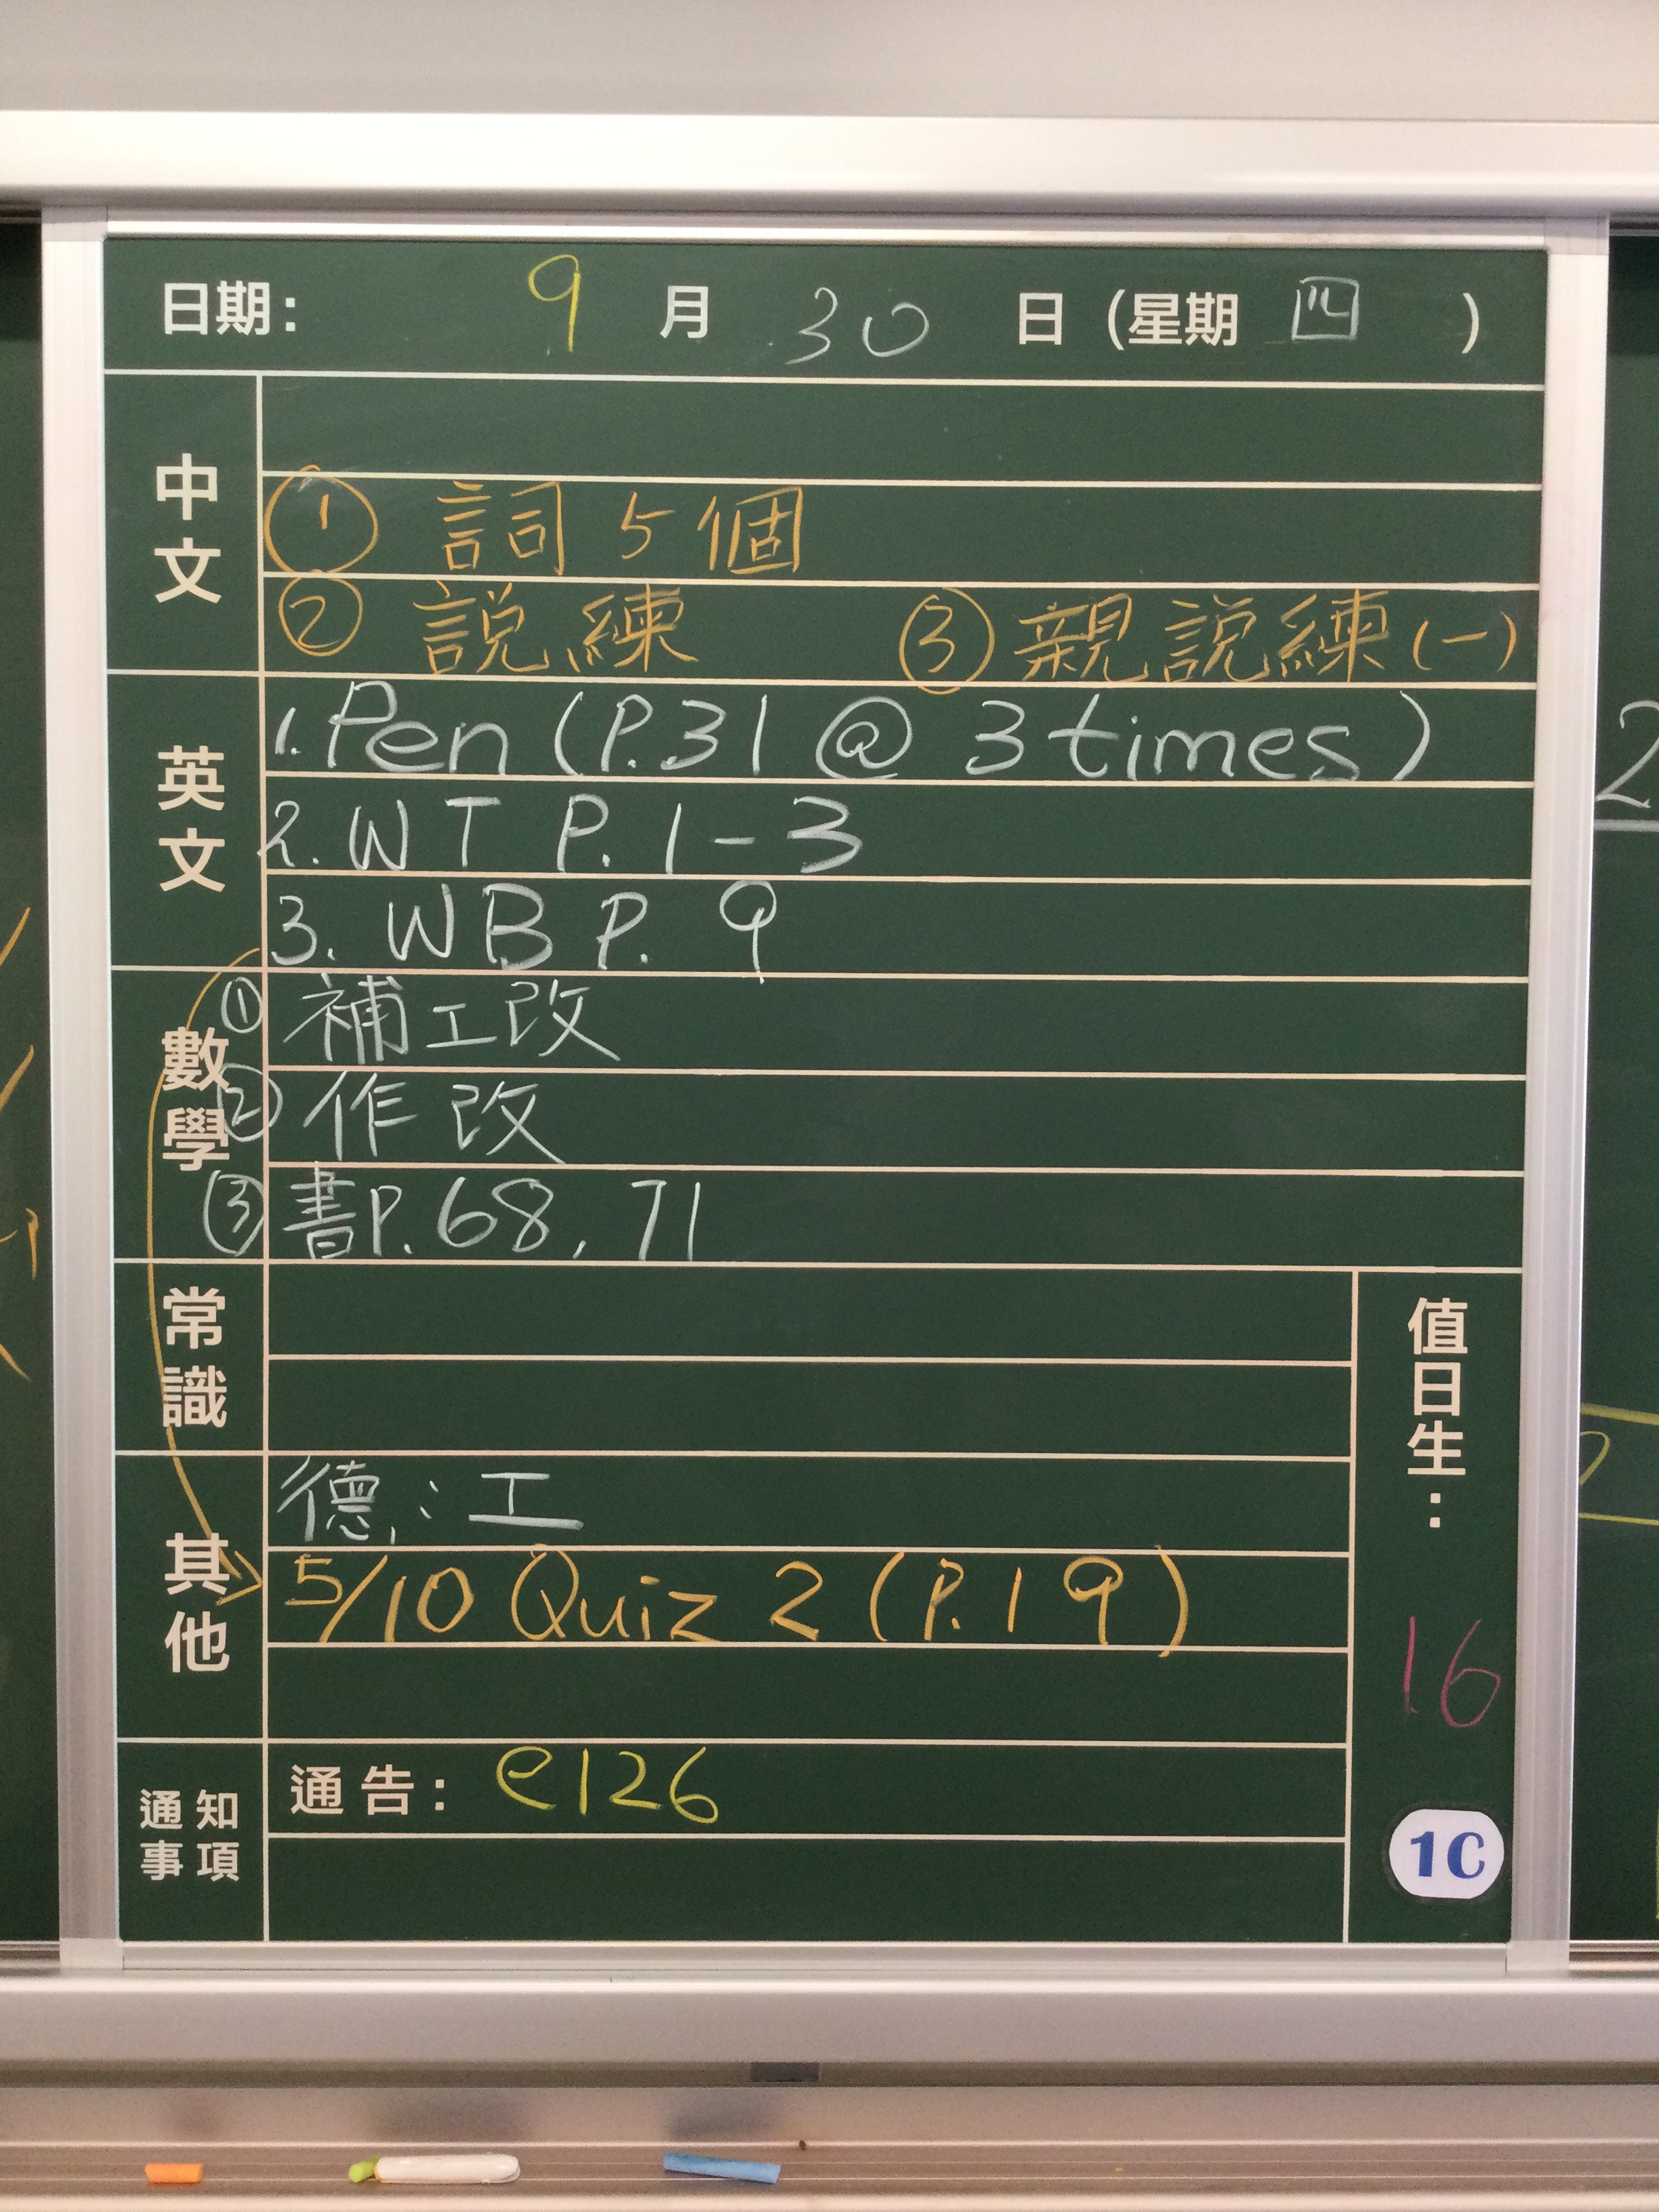 日期： 9 月 30 日 (星期 四 )
中文
① 詞 5 個
② 說練 ③ 親說練 (一)
英文
1. Pen (P.31 @ 3 times)
2. WT P. 1-3
3. WB P. 9
數學
① 補工改
② 作改
③ 書P. 68, 71
常識
其他
德：工
5/10 Quiz 2 (P. 19)
通知事項
通告： e126
值日生：
16
1C